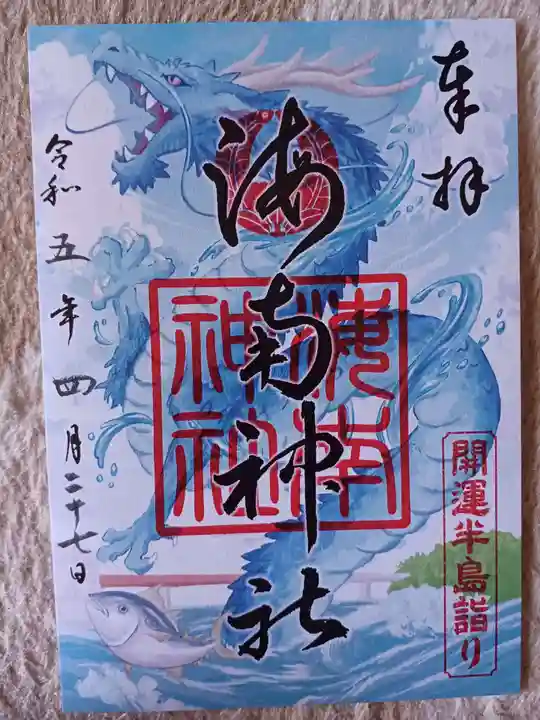 奉拝
海南神社
海南神社
開運半島詣り
令和五年四月二十七日